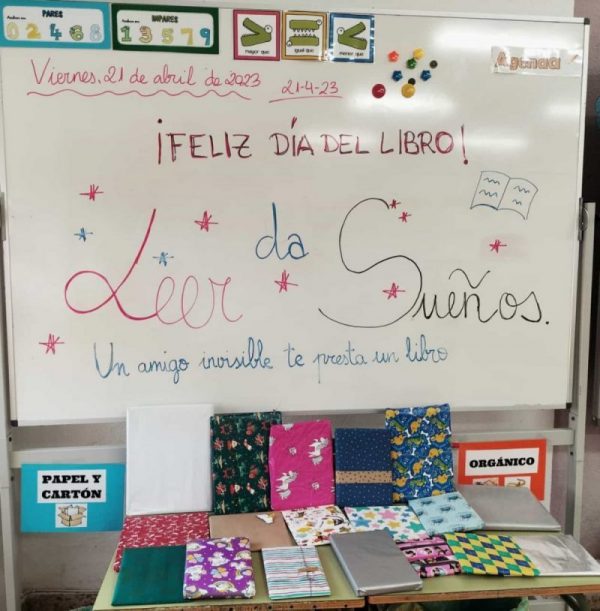 PARES
0 2 4 6 8
IMPARES
1 3 5 7 9
mayor que
igual que
menor que
Agenda
Viernes, 21 de abril de 2023
21-4-23
¡FELIZ DÍA DEL LIBRO!
Leer da Sueños.
Un amigo invisible te presta un libro
PAPEL Y
CARTÓN
ORGÁNICO